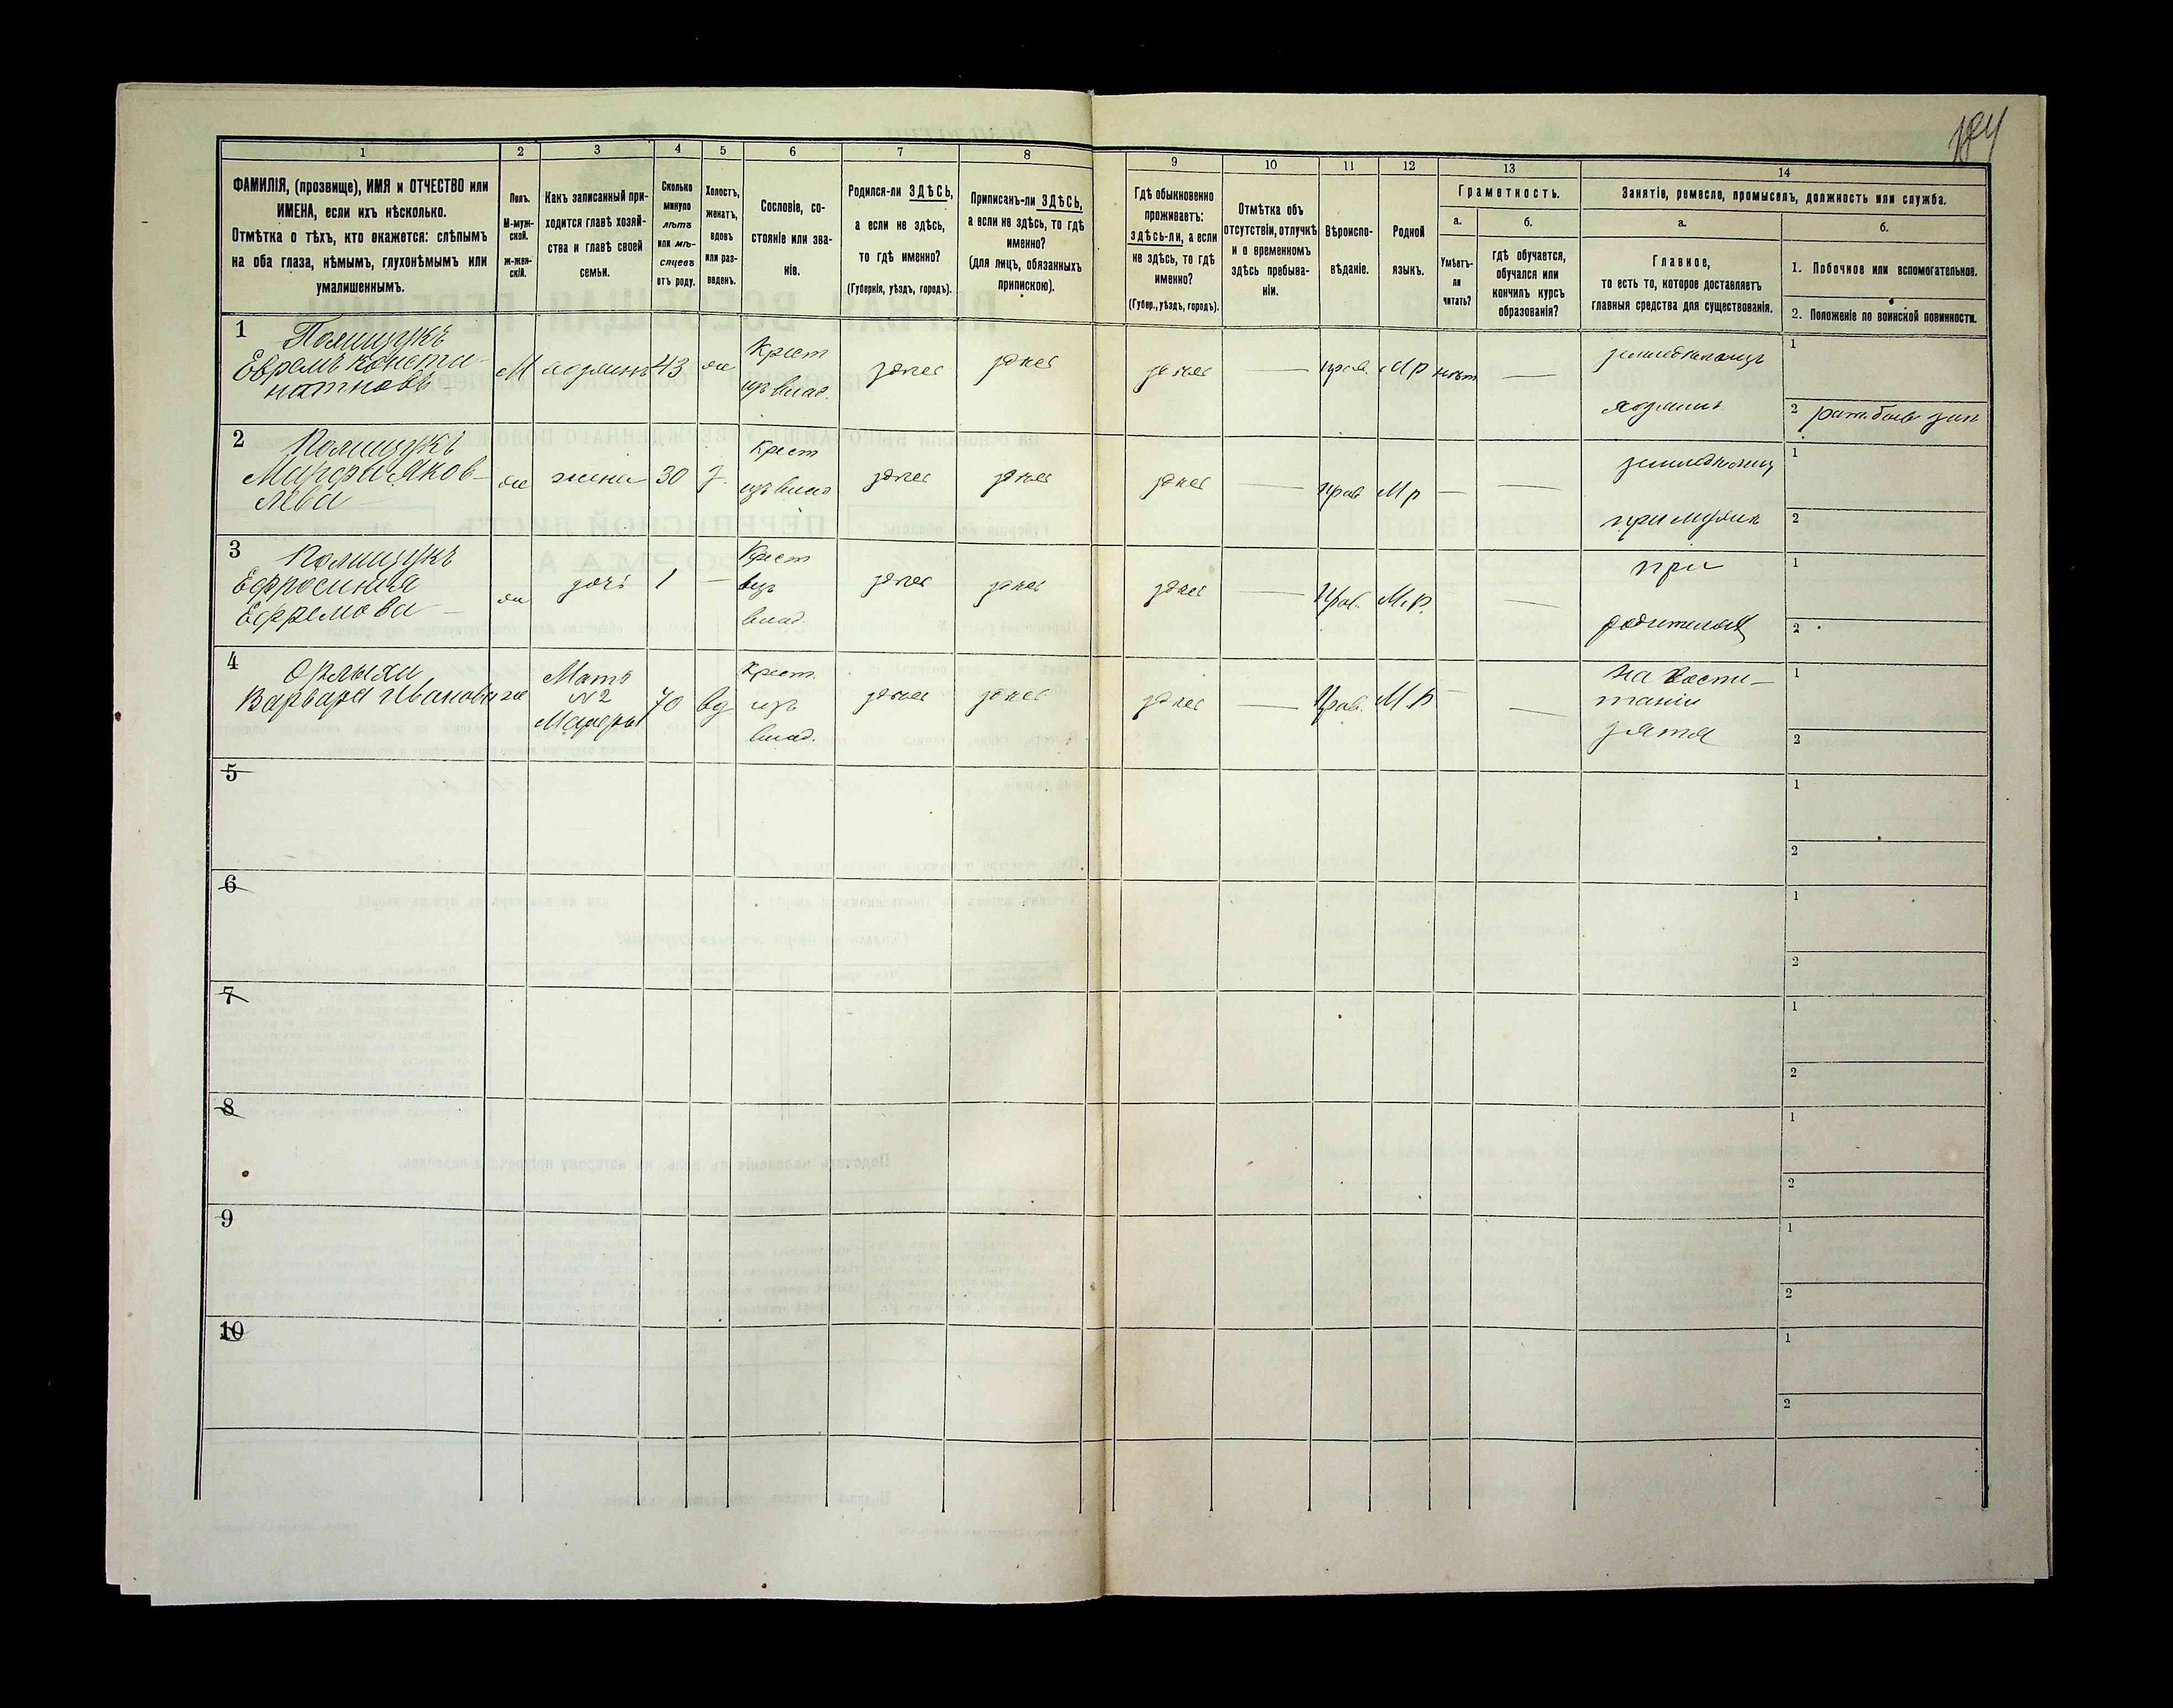 184
1
2
3
4
5
6
7
8
9
10
11
12
13
14
ФАМИЛІЯ, (прозвище), ИМЯ и ОТЧЕСТВО или
ИМЕНА, если ихъ нѣсколько.
Отмѣтка о тѣхъ, кто окажется: слѣпымъ
на оба глаза, нѣмымъ, глухонѣмымъ или
умалишеннымъ.
Полъ.
М-муж-
ской.
ж-жен-
скій.
Какъ записанный при-
ходится главѣ хозяй-
ства и главѣ своей
семьи.
Сколько
минуло
лѣтъ
или мѣ-
сяцевъ
отъ роду.
Холостъ,
женатъ,
вдовъ
или раз-
веденъ.
Сословіе, со-
стояніе или зва-
ніе.
Родился-ли ЗДѢСЬ,
а если не здѣсь,
то гдѣ именно?
(Губернія, уѣздъ, городъ).
Приписанъ-ли ЗДѢСЬ,
а если не здѣсь, то гдѣ
именно?
(для лицъ, обязанныхъ
припискою).
Гдѣ обыкновенно
проживаетъ:
ЗДѢСЬ-ли, а если
не здѣсь, то гдѣ
именно?
(Губер., уѣздъ, городъ).
Отмѣтка объ
отсутствіи, отлучкѣ
и о временномъ
здѣсь пребыва-
ніи.
Вѣроиспо-
вѣданіе.
Родной
языкъ.
Грамотность.
а.
Умѣетъ-
ли
читать?
б.
гдѣ обучается,
обучался или
кончилъ курсъ
образованія?
Занятіе, ремесло, промыселъ, должность или служба.
а.
Главное,
то есть то, которое доставляетъ
главныя средства для существованія.
б.
1. Побочное или вспомогательное.
2. Положеніе по воинской повинности.
1 Полищукъ
Ефремъ Конста-
нтиновъ
М
43
же
Крест
изъ влад.
здѣсь
здѣсь
здѣсь
—
прав.
М р
нѣтъ
—
земледѣлецъ
хозяинъ
1
2
2 Полищукъ
Марфа Яков-
лева
же
жена
30
з.
Крест
изъ влад
здѣсь
здѣсь
здѣсь
—
прав
М р
—
—
при мужѣ
1
2
3 Полищукъ
Ефросинія
Ефремова
же
дочь
1
—
Крест
изъ
влад.
здѣсь
здѣсь
здѣсь
—
Прав.
М.р.
—
при
родителях
1
2
4
Варвара Иванова же
Мать
№2
Марфы
70
вд.
Крест.
изъ
влад.
здѣсь
здѣсь
здѣсь
—
Прав.
М.р
—
—
на воспи-
таніи
зятя
1
2
5
1
2
6
1
2
7
1
2
8
1
2
9
1
2
10
1
2